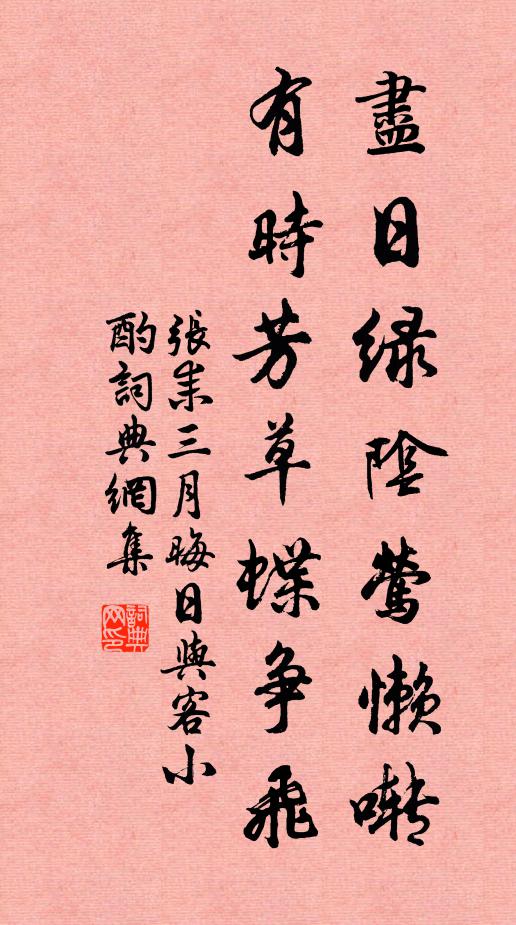 盡日緑陰鶯懶囀
有時芳草蝶争飛
張耒三月晦日與客小
酌詞典網集
詞典網印